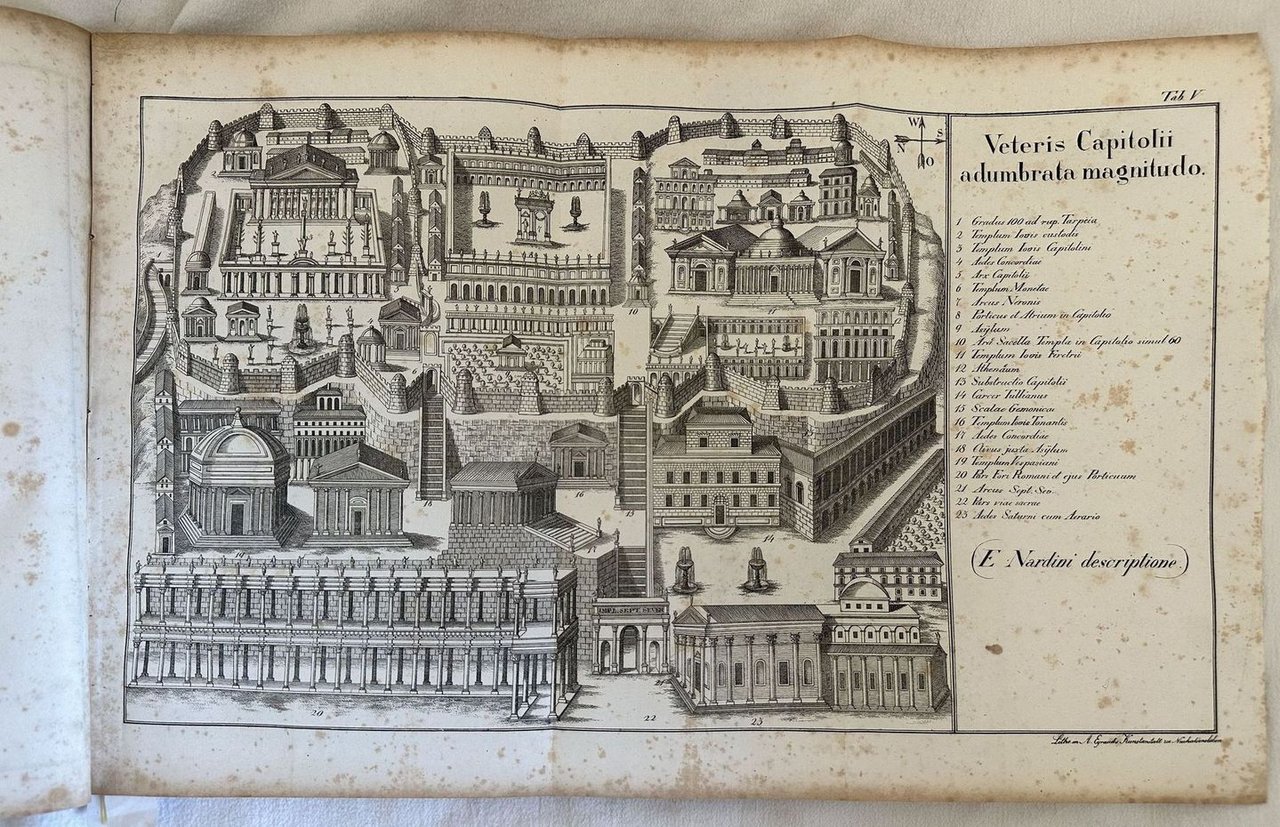 Tab V
Veteris Capitolii
adumbrata magnitudo.
1 Gradus 100 ad rup. Tarpeia
2 Templum Iovis custodis
3 Templum Iovis Capitolini
4 Aedes Concordiae
5 Arx Capitolii
6 Templum Monetae
7 Arcus Neronis
8 Porticus et Atrium in Capitolio
9 Asÿlum
10 Sacella Templa in Capitolio simul 60
11 Templum Iovis Feretrii
12 Athenäum
13 Substructio Capitolii
14 Carcer Tullianus
15 Scalae Gemonicae
16 Templum Iovis Tonantis
17 Aedes Concordiae
18 Clivus juxta Asÿlum
19 Templum Vespasiani
20 Pars Fori Romani et ejus Porticuum
21 Arcus Sept. Sev.
22 Pars viae sacrae
23 Aedes Saturni cum Aerario
(E Nardini descriptione.)
W
S
N
O
10
11
18
16
13
19
17
14
IMP. SEPT. SEVER
20
22
23
Kunstanstalt